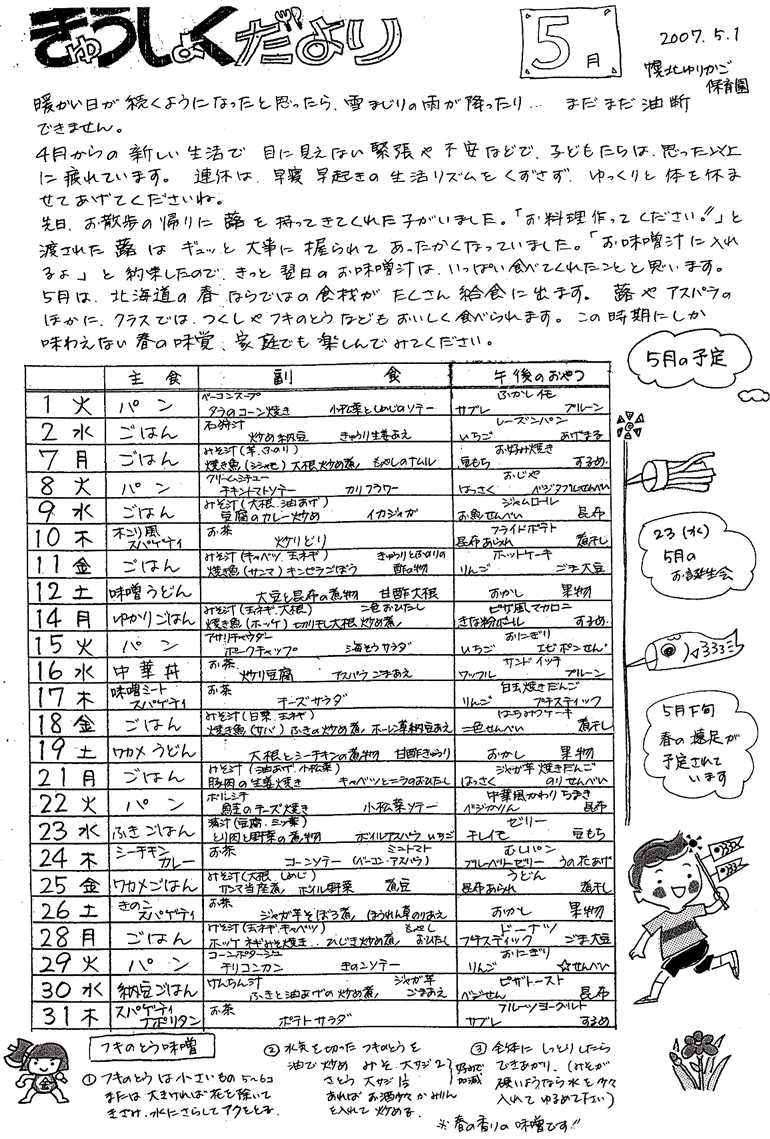 きゅうしょくだより
5月
2007.5.1
幌北ゆりかご
保育園
暖かい日が続くようになったと思ったら、雪まじりの雨が降ったり… まだまだ油断
できません。
4月からの新しい生活で目に見えない緊張や不安などで、子どもたちは、思った以上
に疲れています。連休は、早寝早起きの生活リズムをくずさず、ゆっくりと体を休ま
せてあげてくださいね。
先日、お散歩の帰りに蕗を持ってきてくれた子がいました。「お料理作ってください!!」と
渡された蕗はギュッと大事に握られてあったかくなっていました。「お味噌汁に入れ
るよ」と約束したので、きっと翌日のお味噌汁は、いっぱい食べてくれたことと思います。
5月は、北海道の春ならではの食材がたくさん給食に出ます。蕗やアスパラの
ほかに、クラスでは、つくしやフキのとうなどもおいしく食べられます。この時期にしか
味わえない春の味覚、家庭でも楽しんでみてください。
主食 副食 午後のおやつ
1 火 パン ベーコンスープ タラのコーン焼き 小松菜としめじのソテー ふかし芋 サブレ プルーン
2 水 ごはん 石狩汁 炒め納豆 きゅうり生姜あえ レーズンパン いちご あげまる
7 月 ごはん みそ汁(芋、ふのり) 焼き魚(シシャモ) 大根炒め煮 もやしのナムル お好み焼き 豆もち するめ
8 火 パン クリームシチュー チキントマトソテー カリフラワー おじや はっさく ベジタブルせんべい
9 水 ごはん みそ汁(大根、油あげ) 豆腐のカレー炒め イカジャガ ジャムロール お魚せんべい 昆布
10 木 きこり風スパゲティ お茶 炒りどり フライドポテト 昆布あられ 煮干し
11 金 ごはん みそ汁(キャベツ、玉ネギ) 焼き魚(サンマ) キンピラごぼう きゅうりとふのりの酢の物 ホットケーキ りんご ごま大豆
12 土 味噌うどん 大豆と昆布の煮物 甘酢大根 おかし 果物
14 月 ゆかりごはん みそ汁(玉ネギ、大根) 焼き魚(ホッケ) 切り干し大根炒め煮 二色おひたし ピザ風マカロニ きな粉ボール するめ
15 火 パン アサリチャウダー ポークチャップ 海そうサラダ おにぎり いちご エビポンせん
16 水 中華丼 お茶 炒り豆腐 アスパラごまあえ サンドイッチ ワッフル プルーン
17 木 味噌ミートスパゲティ お茶 チーズサラダ 白玉焼きだんご りんご プチスティック
18 金 ごはん みそ汁(白菜、玉ネギ) 焼き魚(サバ) ふきの炒め煮 ホーレン草納豆あえ はちみつケーキ 二色せんべい 煮干し
19 土 ワカメうどん 大根とシーチキンの煮物 甘酢きゅうり おかし 果物
21 月 ごはん みそ汁(油あげ、小松菜) 豚肉の生姜焼き キャベツとニラのおひたし ジャガ芋焼きだんご はっさく のりせんべい
22 火 パン ボルシチ 鮭のチーズ焼き 小松菜ソテー 中華風かわりちまき ベジかりん 昆布
23 水 ふきごはん 清汁(豆腐、ミツ葉) とり肉と野菜の煮物 ボイルアスパラ いちご ゼリー チレイモ 豆もち
24 木 シーチキンカレー お茶 コーンソテー(ベーコン・アスパラ) ミニトマト むしパン ブルーベリーゼリー うの花あげ
25 金 ワカメごはん みそ汁(大根、しめじ) サンマ当座煮 ボイル野菜 煮豆 うどん 昆布あられ 煮干し
26 土 きのこスパゲティ お茶 ジャガ芋そぼろ煮 ほうれん草のりあえ おかし 果物
28 月 ごはん みそ汁(玉ネギ、キャベツ) ホッケネギみそ焼き ひじき炒め煮 もやしおひたし ドーナツ プチスティック ごま大豆
29 火 パン コーンポタージュ チリコンカン きのこソテー おにぎり りんご ☆せんべい
30 水 納豆ごはん けんちん汁 ふきと油あげの炒め煮 ジャガ芋ごまあえ ピザトースト ベジせん 昆布
31 木 スパゲティナポリタン お茶 ポテトサラダ フルーツヨーグルト サブレ するめ
5月の予定
23(水)
5月の
お誕生会
5月下旬
春の遠足が
予定されて
います
フキのとう味噌
① フキのとうは小さいもの5〜6コ
または大きければ花を除いて
きざみ、水にさらしてアクをとる。
② 水気を切ったフキのとうを
油で炒め みそ大サジ2
さとう大サジ1½
好みで加減
あればお酒少々かみりん
を入れて炒める。
③ 全体にしっとりしたら
できあがり。(みそが
硬いようなら水を少々
入れてゆるめて下さい)
※春の香りの味噌です!!
金